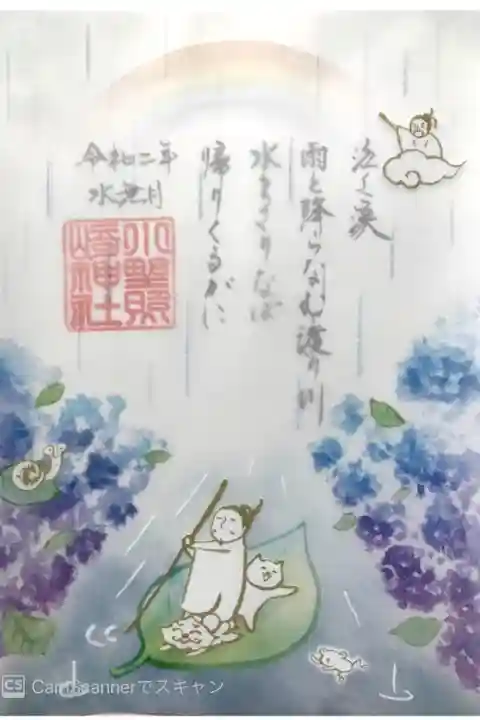 泣く涙
雨と降らなむ渡り川
水まさりなば
帰りくるがに
令和二年
水無月
小野照
崎神社
CS CamScannerでスキャン